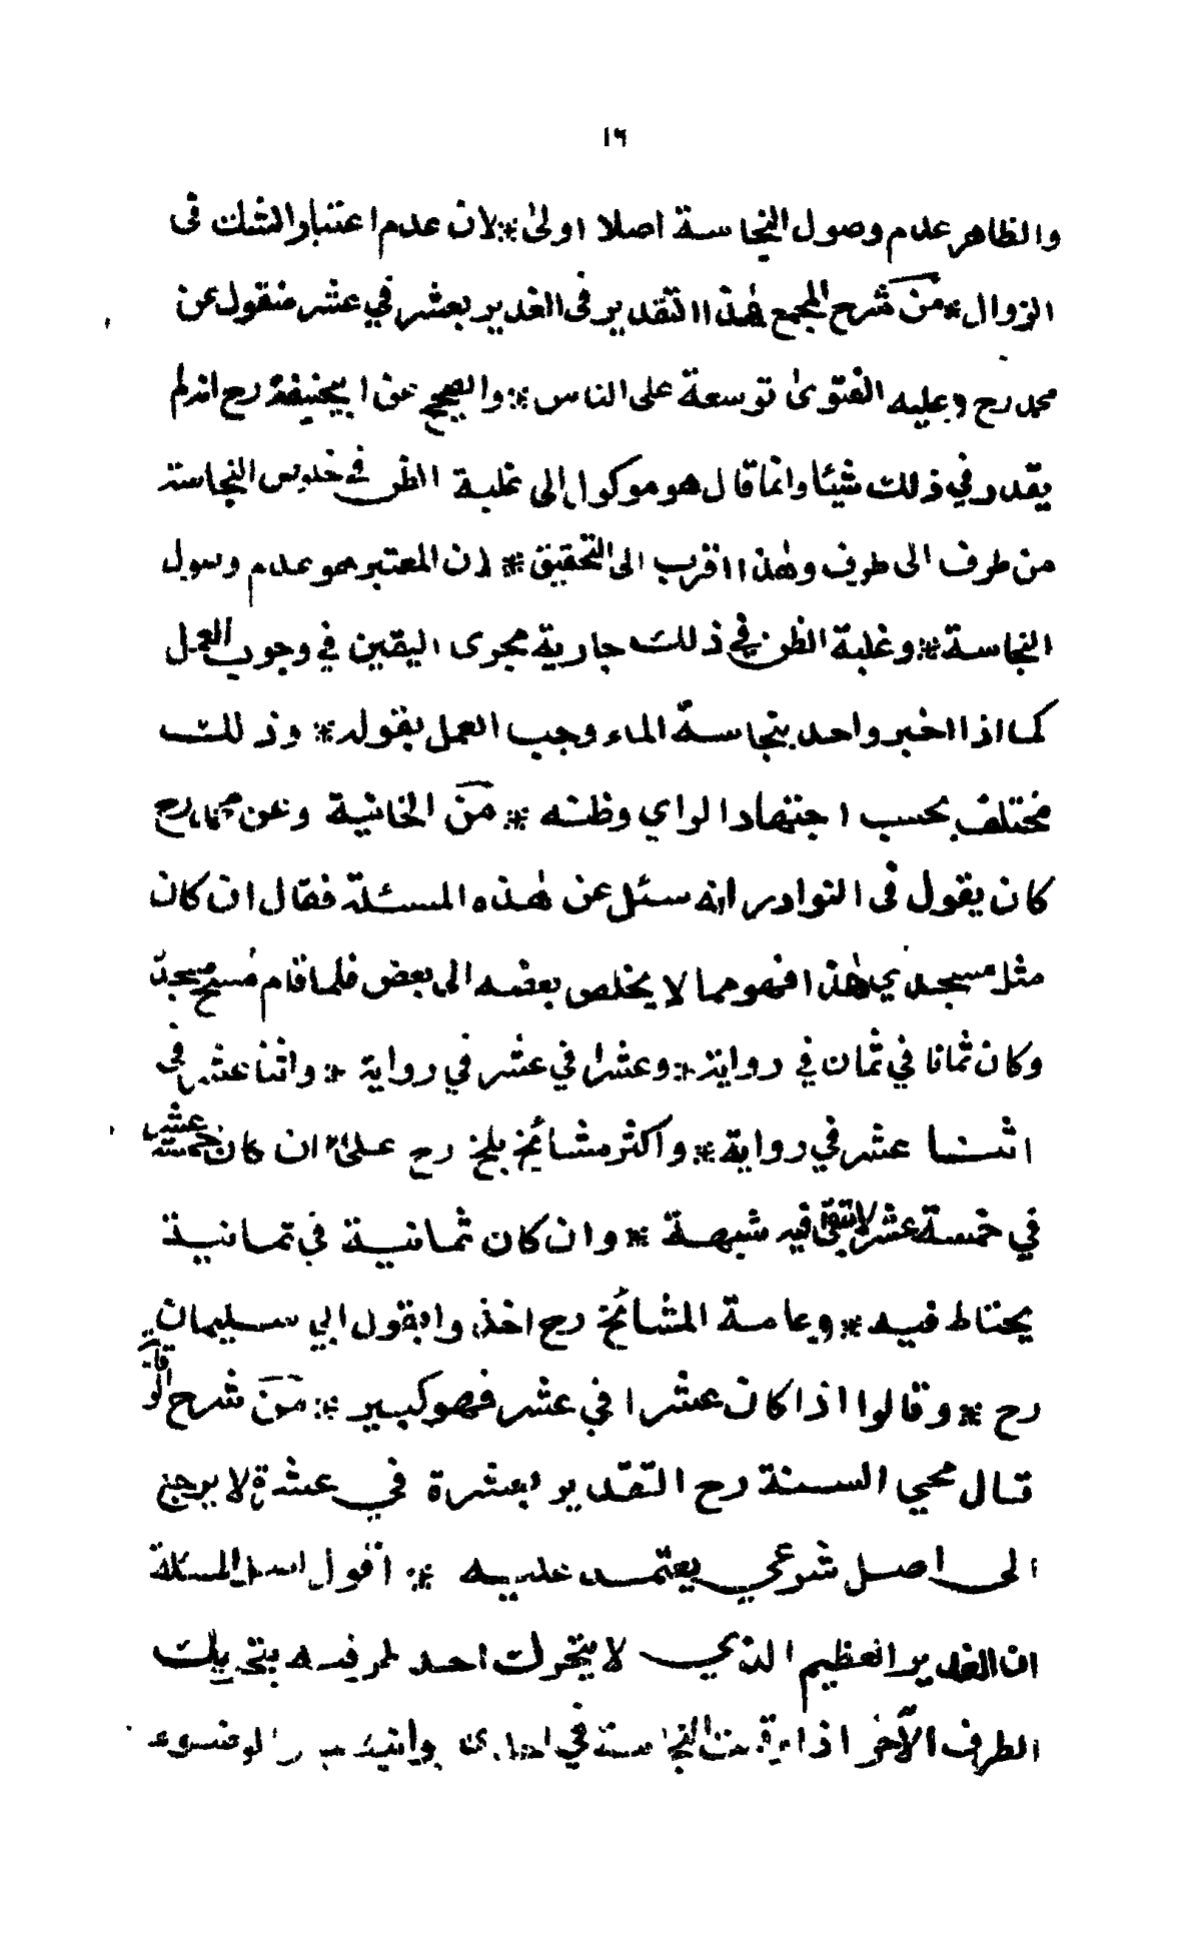 ١٦
والظاهر عدم وصول النجاسة اصلا اولىٰ * لان عدم اعتبار الشك فى
الزوال * من شرح المجمع هٰذا التقدير فى الغدير بعشر في عشر منقول عن
محمد رح وعليه الفتوىٰ توسعة على الناس * والصحيح عن ابيحنيفة رح انه لم
يقدر في ذلك شيئا وانما قال هو موكول الى غلبة الظن في خلوص النجاسة
من طرف الى طرف وهٰذا اقرب الى التحقيق * لان المعتبر هو عدم وصول
النجاسة * وغلبة الظن في ذلك جارية مجرى اليقين في وجوب العمل
كما اذا اخبر واحد بنجاسة الماء وجب العمل بقوله * وذلك
مختلف بحسب اجتهاد الراي وظنه * من الخانية وعن محمد رح
كان يقول فى النوادر انه سئل عن هٰذه المسئلة فقال ان كان
مثل مسجدي هٰذا فهو مما لا يخلص بعضه الى بعض فلما قام مسح مسجده
وكان ثمانا في ثمان في رواية * وعشرا في عشر في رواية * واثنا عشر فى
اثنا عشر في رواية * واكثر مشائخ بلخ رح علىٰ ان كان خمسة عشر
في خمسة عشر لا تبقى فيه شبهة * وان كان ثمانية في ثمانية
يحتاط فيه * وعامة المشائخ رح اخذوا بقول ابي سليمان
رح * وقالوا اذا كان عشرا في عشر فهو كبير * من شرح الوقاية
قال محيي السنة رح التقدير بعشرة في عشرة لا يرجع
الى اصل شرعي يعتمد عليه * اقول اصل المسئلة
ان الغدير العظيم الذي لا يتحرك احد طرفيه بتحريك
الطرف الآخر اذا وقعت النجاسة في احد جانبيه الوضوء